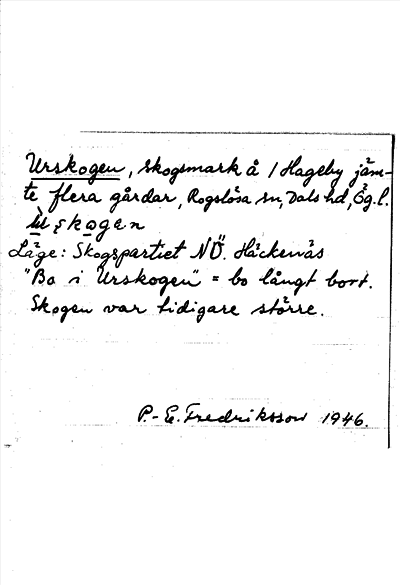 Urskogen, skogsmark å 1 Hageby jäm-
te flera gårdar, Rogslösa sn, Dals hd, Ög. l.
skogen
Läge: Skogspartiet NÖ. Häckenäs
"Bo i Urskogen" = bo långt bort.
Skogen var tidigare större.
P.-E. Fredriksson 1946.